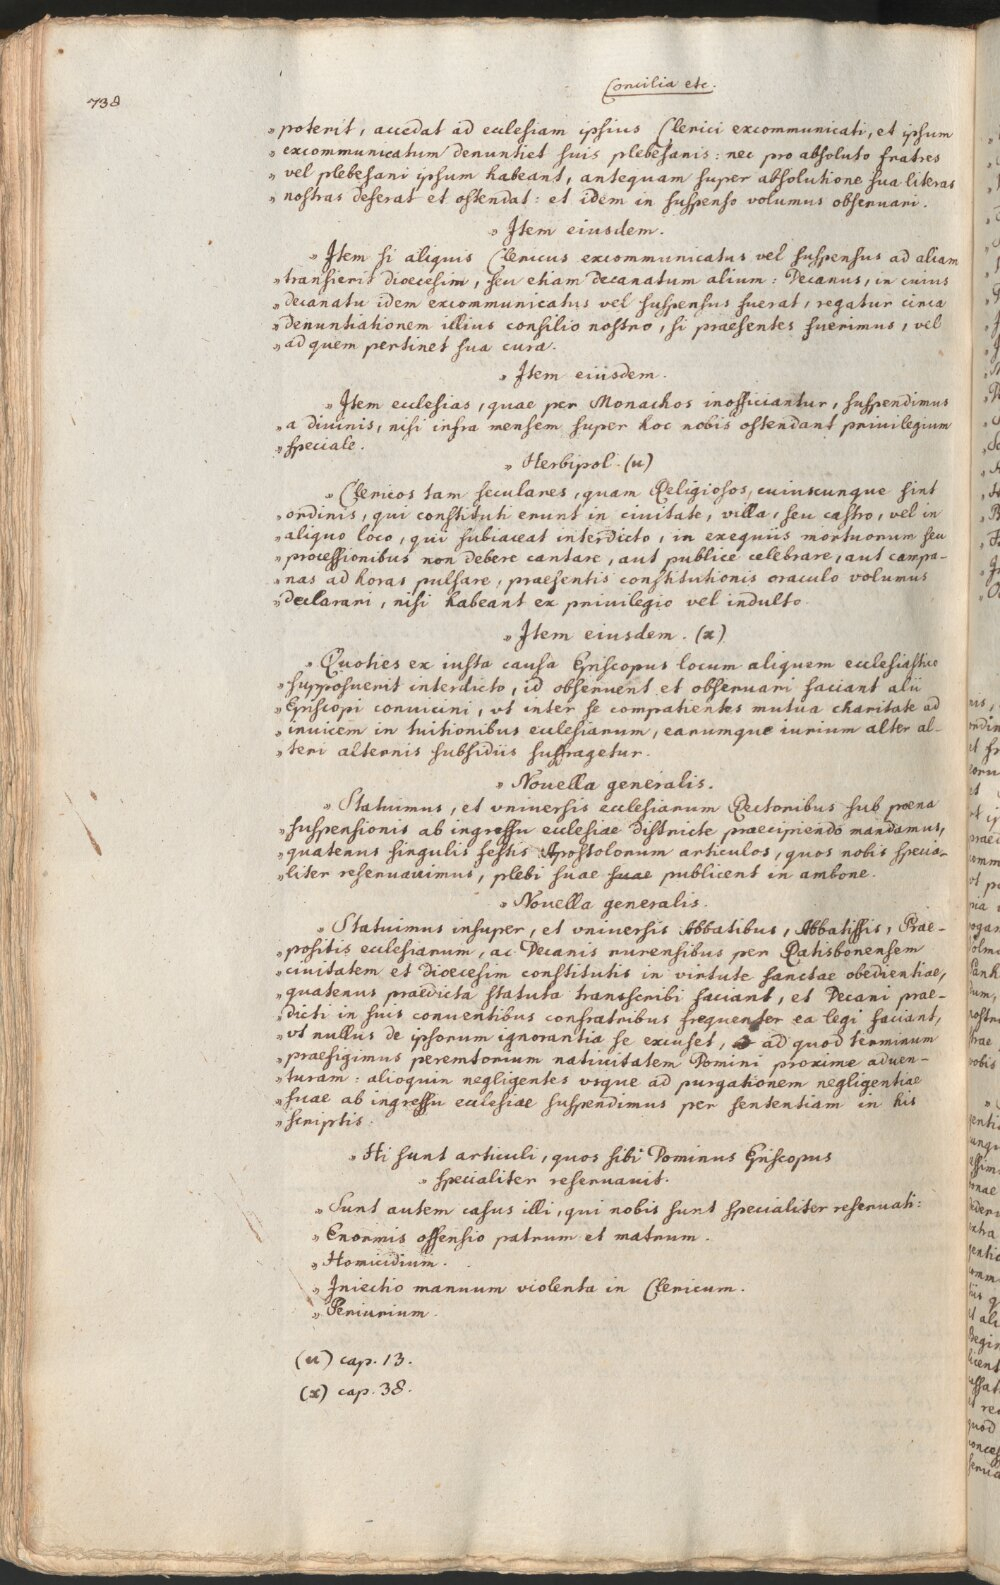 738
Concilia etc.
„ poterit, accedat ad ecclesiam ipsius Clerici excommunicati, et ipsum
„ excommunicatum denuntiet suis plebesanis: nec pro absoluto fratres
„ vel plebesani ipsum habeant, antequam super absolutione sua literas
„ nostras deferat et ostendat: et idem in suspenso volumus obseruari.
„ Item eiusdem.
„ Item si aliquis Clericus excommunicatus vel suspensus ad aliam
„ transierit dioecesim, seu etiam decanatum alium: Decanus, in cuius
„ decanatu idem excommunicatus vel suspensus fuerat, regatur circa
„ denuntiationem illius consilio nostro, si praesentes fuerimus, vel
„ ad quem pertinet sua cura.
„ Item eiusdem.
„ Item ecclesias, quae per Monachos inofficiantur, suspendimus
„ a diuinis, nisi infra mensem super hoc nobis ostendant priuilegium
„ speciale.
„ Herbipol. (u)
„ Clericos tam seculares, quam Religiosos, cuiuscunque sint
„ ordinis, qui constituti erunt in ciuitate, villa, seu castro, vel in
„ aliquo loco, qui subiaceat interdicto, in exequiis mortuorum seu
„ processionibus non debere cantare, aut publice celebrare, aut campa-
„ nas ad horas pulsare, praesentis constitutionis oraculo volumus
„ declarari, nisi habeant ex priuilegio vel indulto.
„ Item eiusdem. (x)
„ Quoties ex iusta causa Episcopus locum aliquem ecclesiastico
„ supposuerit interdicto, id obseruent et obseruari faciant alii
„ Episcopi conuicini, vt inter se compatientes mutua charitate ad
„ inuicem in tuitionibus ecclesiarum, earumque iurium alter al-
„ teri alternis subsidiis suffragetur.
„ Nouella generalis.
„ Statuimus, et vniuersis ecclesiarum Rectoribus sub poena
„ suspensionis ab ingressu ecclesiae districte praecipiendo mandamus,
„ quatenus singulis festis Apostolorum articulos, quos nobis specia-
„ liter reseruauimus, plebi suae suae publicent in ambone.
„ Nouella generalis.
„ Statuimus insuper, et vniuersis Abbatibus, Abbatissis, Prae-
„ positis ecclesiarum, ac Decanis rurensibus per Ratisbonensem
„ ciuitatem et dioecesim constitutis in virtute sanctae obedientiae,
„ quatenus praedicta statuta transscribi faciant, et Decani prae-
„ dicti in suis conuentibus confratribus frequenter ea legi faciant,
„ vt nullus de ipsorum ignorantia se excuset, ad quod terminum
„ praefigimus peremtorium natiuitatem Domini proxime aduen-
„ turam: alioquin negligentes vsque ad purgationem negligentiae
„ suae ab ingressu ecclesiae suspendimus per sententiam in his
„ scriptis.
„ Hi sunt articuli, quos sibi Dominus Episcopus
„ specialiter reseruauit.
„ Sunt autem casus illi, qui nobis sunt specialiter reseruati:
„ Enormis offensio patrum et matrum.
„ Homicidium.
„ Iniectio manuum violenta in Clericum.
„ Periurium.
(u) cap. 13.
(x) cap. 38.